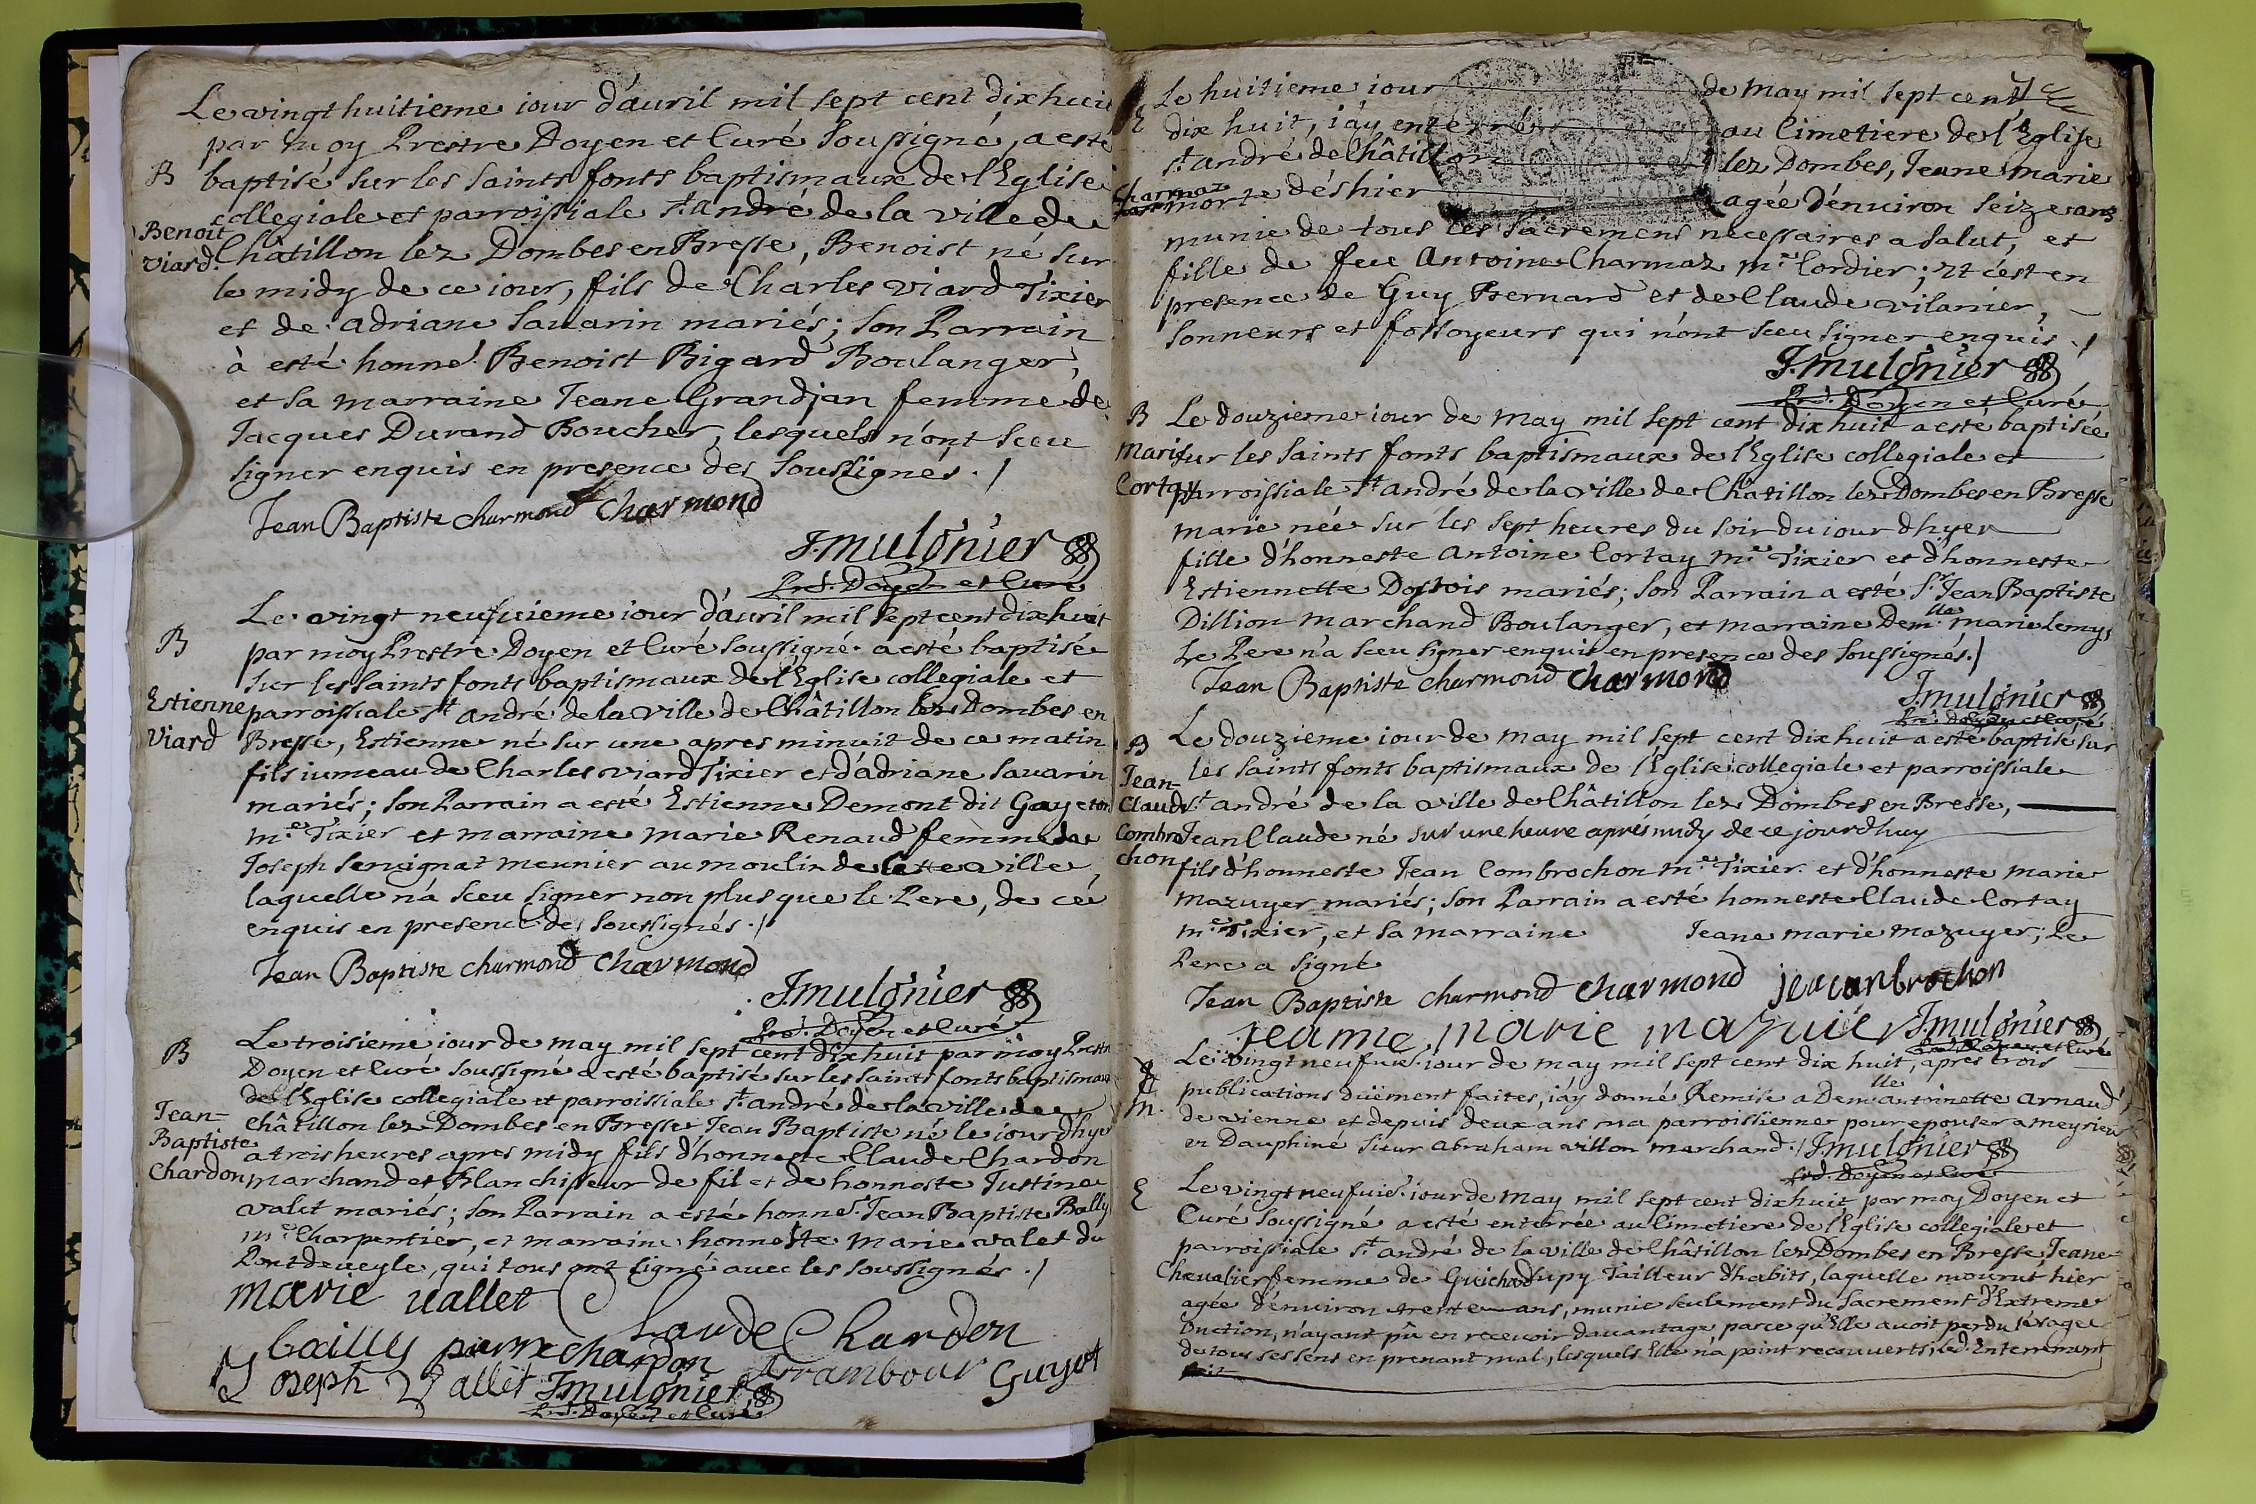 Le vingt huitieme iour d'auril mil sept cent dix huit
par moy Prestre Doyen et Curé soussigné, a esté
B baptisé sur les saints fonts baptismaux de l'Eglise
collegiale et parroissiale st. andré de la ville de
Benoit Viard. Châtillon lez Dombes en Bresse, Benoist né sur
le midy de ce iour, fils de Charles viard Tixier
et de adriane Sauarin mariés; son Parrain
à esté honne. Benoist Bigard Boulanger,
et sa marraine Jeane Grandjan femme de
Jacques Durand Boucher, lesquels n'ont sceu
signer enquis en presence des soussignés ./
Jean Baptiste charmond Charmond
J. mulonier
Prd. Doyen et Curé
Le vingt neufuieme iour d'auril mil sept cent dix huit
B par moy Prestre Doyen et Curé soussigné a esté baptisé
sur les saints fonts baptismaux de l'Eglise collegiale et
Estienne parroissiale st andré de la ville de Châtillon lez Dombes en
Viard Bresse, Estienne né sur une apres minuit de ce matin
fils iumeau de Charles viard Tixier et d'adriane Sauarin
mariés; son Parrain a esté Estienne Demont dit Gayeton
me. Tixier et marraine marie Renaud femme de
Joseph Seruignat meunier au moulin de Cette ville,
laquelle n'a sceu signer non plus que le Pere, de ce
enquis en presence des soussignés ./
Jean Baptiste charmond Charmond
J. mulonier
Prd. Doyen et Curé
Le troisieme iour de may mil sept cent dix huit par moy Prestre
B Doyen et Curé soussigné a esté baptisé sur les saints fonts baptismaux
de l'Eglise collegiale et parroissiale st. andré de la ville de
Jean= châtillon lez Dombes en Bresse Jean Baptiste né le iour d'hyer
Baptiste a trois heures apres midy fils d'honneste Claude Chardon
Chardon marchand et Blanchisseur de fil et de honneste Justine
valet mariés; son Parrain a esté honne. Jean Baptiste Bally
me. Charpentier, et marraine honneste marie valet du
Pontdeueyle, qui tous ont signé auec les soussignés ./
marie uallet Claude Chardon
bailly parrx chardon
Joseph Vallet J. mulonier Arrambour Guyot
Prd. Doyen et Curé
Le huitieme iour de may mil sept cent
E dix huit, i'ay enterré au Cimetiere de l'Eglise
st. andré de Châtillon lez Dombes, Jeane marie
Charmaz morte dés hier agée d'enuiron seize ans
munie de tous les sacremens necessaires a salut, et
fille de feu Antoine Charmaz me. Cordier; et c'est en
presence de Guy Bernard et de Claude vilanier,
sonneurs et fossoyeurs qui n'ont sceu signer enquis ./
J. mulonier
Prd. Doyen et Curé
B Le douzieme iour de may mil sept cent dix huit a esté baptisée
Marie sur les saints fonts baptismaux de l'Eglise collegiale et
Cortay parroissiale st andré de la ville de Châtillon lez Dombes en Bresse
marie née sur les sept heures du soir du iour d'hyer
fille d'honneste Antoine Cortay me. Tixier et d'honneste
Estiennette mariés; son Parrain a esté Sr. Jean Baptiste
Dillion marchand Boulanger, et marraine Demlle. marie Lemys
Le Pere n'a sceu signer enquis en presence des soussignés./
Jean Baptiste charmond Charmond
J. mulonier
Prd. Doyen et Curé
B Le douzieme iour de may mil sept cent dix huit a esté baptisé sur
Jean- les saints fonts baptismaux de l'Eglise collegiale et parroissiale
Claude st. andré de la ville de Châtillon lez Dombes en Bresse,
Combro Jean Claude né sur une heure aprés midy de ce jourdhuy
chon fils d'honneste Jean Combrochon me. Tixier et d'honneste marie
mazuyer mariés; son Parrain a esté honneste Claude Cortay
me. Tixier, et sa marraine Jeane marie mazuyer; Le
Pere a signé
Jean Baptiste charmond Charmond jea canbrochon
jeanne marie mazuier J. mulonier
Prd. Doyen et Curé
Le vingt neufuie. iour de may mil sept cent dix huit, apres trois
M. publications düement faites, i'ay donné Remise a Demlle antoinette arnaud
de vienne et depuis deux ans ma parroissienne pour epouser a meysieu
en Dauphiné sieur abraham villon marchand ./ J. mulonier
Prd. Doyen et Curé
E Le vingt neufuie. iour de may mil sept cent dix huit par moy Doyen et
Curé soussigné a esté enterrée au Cimetiere de l'Eglise collegiale et
parroissiale st. andré de la ville de Châtillon lez Dombes en Bresse, Jeane
Cheualier femme de Guichard dupy Tailleur d'habits, laquelle mourut hier
agée d'enuiron trente ans, munie seulement du sacrement d'Extreme
Onction, n'ayant pû en receuoir dauantage parce qu'Elle auoit perdu l'vsage
de tous ses sens en prenant mal, lesquels Elle n'a point recouuerts, led. Enterrement
fait